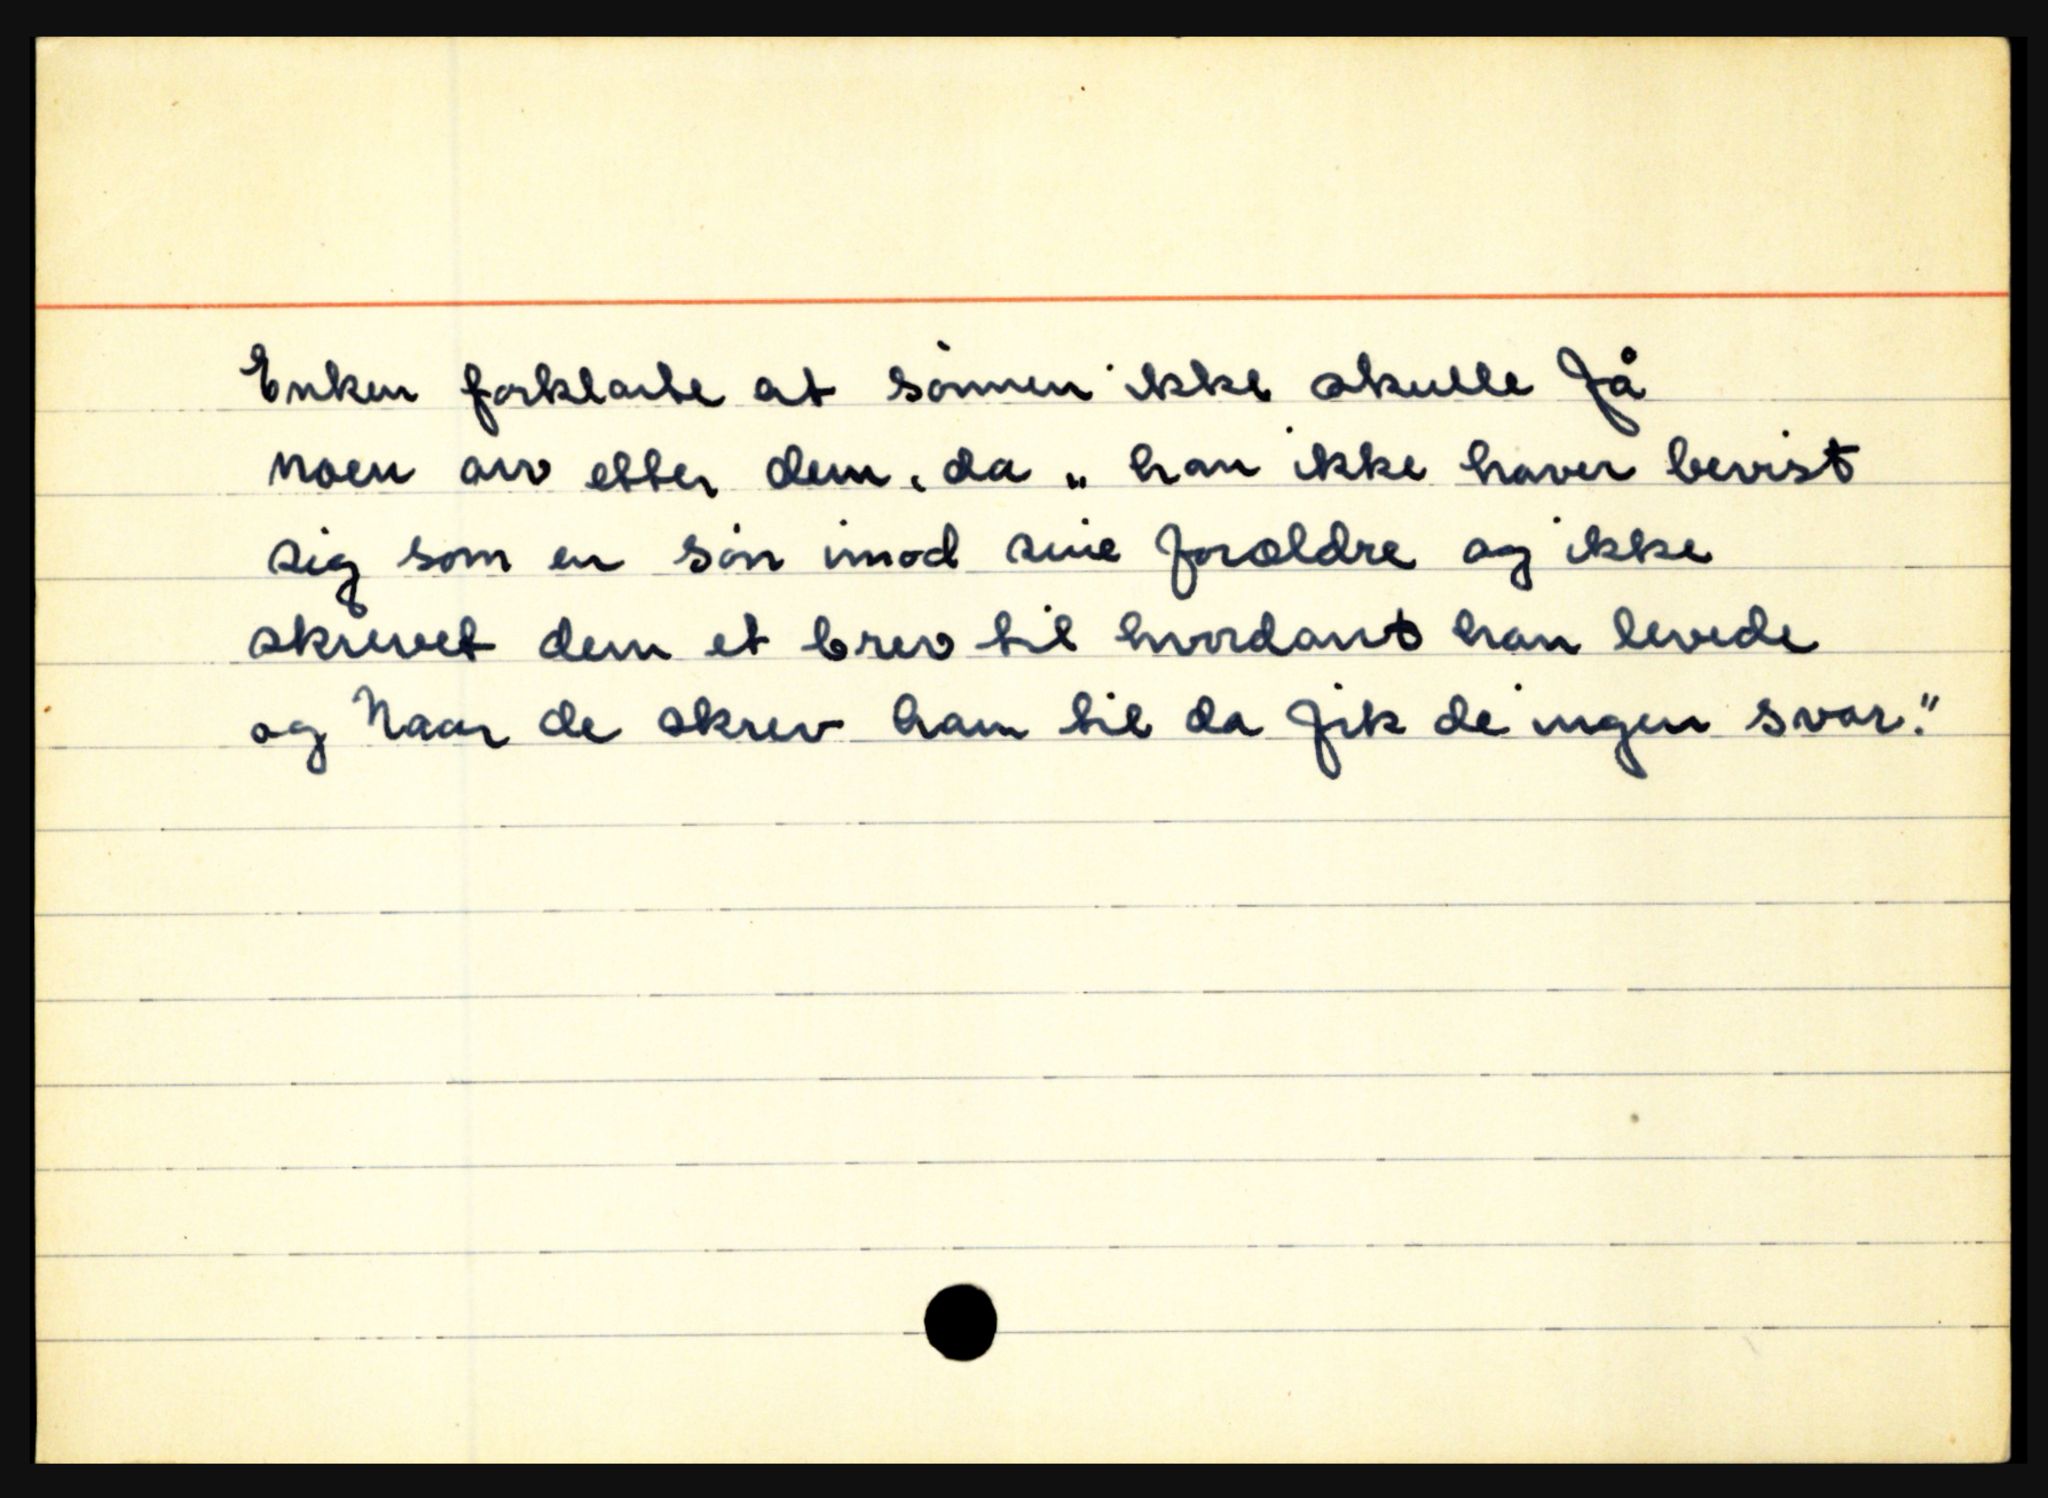 Enken forklarte at sønnen ikke skulle få
noen arv etter dem, da „ han ikke haver bevist
sig som en søn imod sine forældre og ikke
skrevet dem et brev til hvordant han levede
og Naar de skrev ham til da fik de ingen svar."